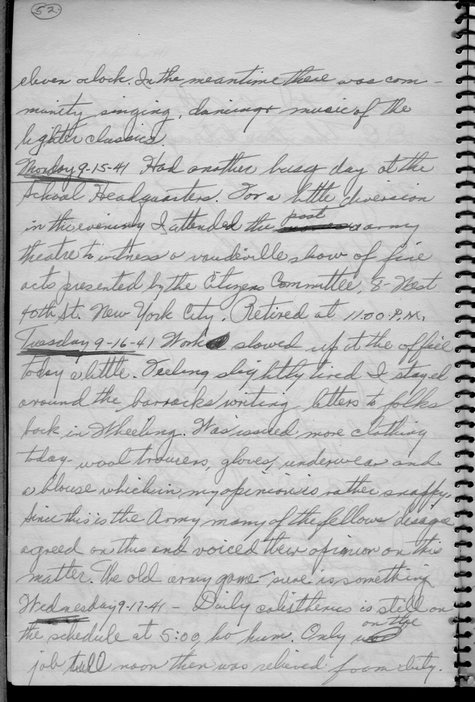 52.
eleven oclock. In the meantime there was com-
munity singing, dancing & music of the
lighter classics.
Monday 9-15-41 Had another busy day at the
School Headquarters. For a little diversion
in the evening I attended the post army
theatre to witness a vaudeville show of five
acts presented by the Citizens Committee, 8-West
40th St. New York City. Retired at 11:00 P.M.
Tuesday 9-16-41 Work slowed up at the office
today a little. Feeling slightly tired I stayed
around the barracks writing letters to folks
back in Wheeling. Was issued more clothing
today - wool trousers, gloves, underwear and
a blouse which in my opinion is rather snappy.
Since this is the Army many of the fellows disagr
agreed on this and voiced their opinion on this
matter. The old army game sure is something
Wednesday 9-17-41 - Daily calisthenics is still on
the schedule at 5:00 ho hum. Only on the
job till noon then was relieved from duty.